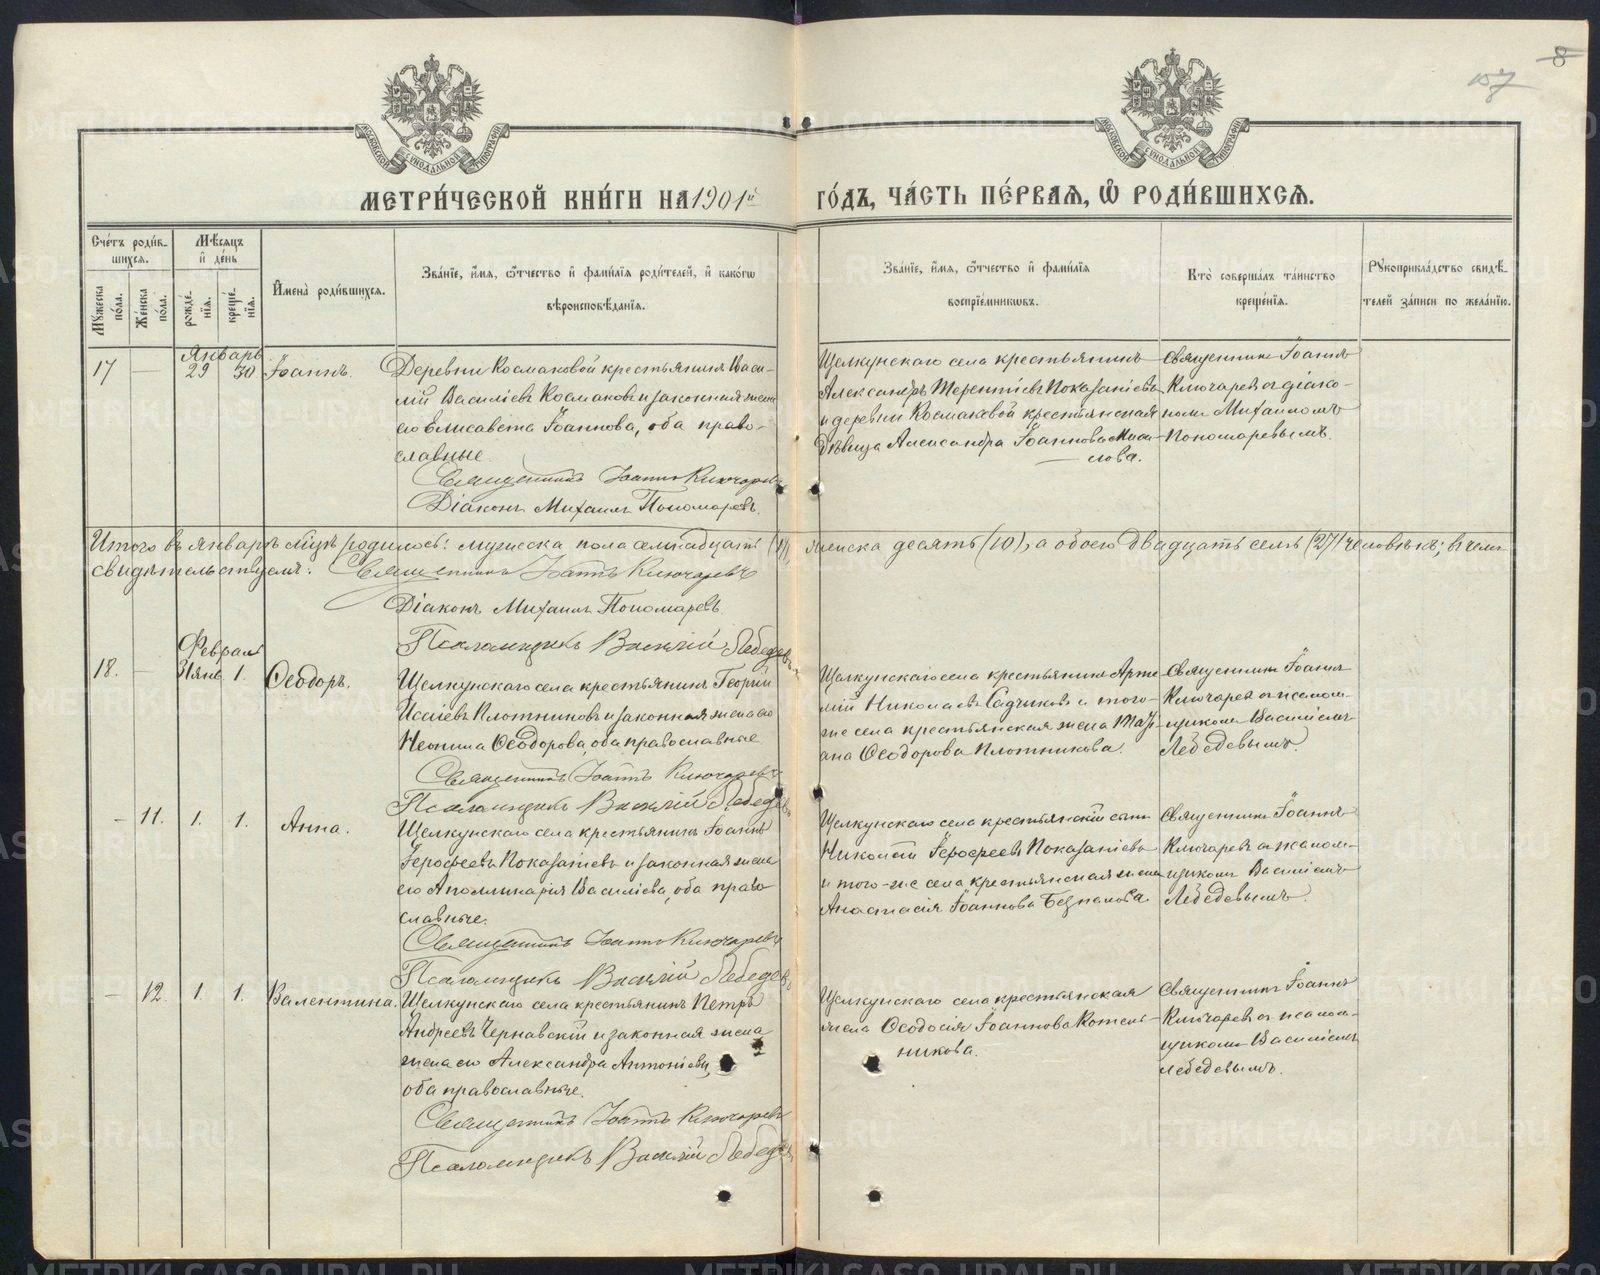 8
157
МОСКОВСКОЙ СѴНОДАЛЬНОЙ ТИПОГРАФІИ
МОСКОВСКОЙ СѴНОДАЛЬНОЙ ТИПОГРАФІИ
МЕТРИ́ЧЕСКОЙ КНИ́ГИ НА 1901й ГО́ДЪ, ЧА́СТЬ ПЕ́РВАЯ, Ѡ҆ РОДИ́ВШИХСЯ.
Сче́тъ роди́в-
шихся.
Мѣ́сяцъ
и҆ де́нь
Мꙋ́жеска по́ла.
Же́нска по́ла.
рожде́-
нїя.
креще́-
нїя.
И҆мена̀ роди́вшихся.
Зва́нїе, и҆́мя, ѻ҆́тчество и҆ фами́лїя роди́телей, и҆ како́гѡ
вѣроисповѣ́данїя.
Зва́нїе, и҆́мя, ѻ҆́тчество и҆ фами́лїя
воспрїе́мникѡвъ.
Кто̀ соверша́лъ та́инство
креще́нїя.
Рꙋкоприкла́дство свидѣ́-
телей за́писи по жела́нїю.
Январь
17 — 29 30 Іоаннъ.
Деревни Космаковой крестьянинъ Васи-
лій Василіевъ Космаковъ и законная жена
его Елисавета Іоаннова, оба право-
славные.
Священникъ Іоаннъ Ключаревъ
Діаконъ Михаилъ Пономаревъ.
Щелкунскаго села крестьянинъ
Александръ Терентіевъ Показаніевъ
и деревни Космаковой крестьянская
дѣвица Александра Іоаннова Мас-
лова.
Священникъ Іоаннъ
Ключаревъ съ діако-
номъ Михаиломъ
Пономаревымъ.
Итого въ январѣ мцѣ родилось: мужеска пола семнадцать (17), женска десять (10), а обоего двадцать семь (27) человѣкъ; въ чемъ
свидѣтельствуемъ: Священникъ Іоаннъ Ключаревъ
Діаконъ Михаилъ Пономаревъ.
Псаломщикъ Василій Лебедевъ
Февраль
18. — 31 янв. 1. Ѳеодоръ.
Щелкунскаго села крестьянинъ Георгій
Исаіевъ Плотниковъ и законная жена его
Неонила Ѳеодорова, оба православные
Священникъ Іоаннъ Ключаревъ
Псаломщикъ Василій Лебедевъ
Щелкунскаго села крестьянинъ Арте-
мій Николаевъ Садчиковъ и того-
же села крестьянская жена Тать-
ана Ѳеодорова Плотникова.
Священникъ Іоаннъ
Ключаревъ съ псалом-
щикомъ Василіемъ
Лебедевымъ.
— 11. 1. 1. Анна.
Щелкунскаго села крестьянинъ Іоаннъ
Іероѳеевъ Показаніевъ и законная жена
его Аполлинарія Василіева, оба право-
славные.
Священникъ Іоаннъ Ключаревъ
Псаломщикъ Василій Лебедевъ
Щелкунскаго села крестьянскій сынъ
Николай Іероѳеевъ Показаніевъ
и того-же села крестьянская жена
Анастасія Іоаннова
Священникъ Іоаннъ
Ключаревъ съ псалом-
щикомъ Василіемъ
Лебедевымъ.
— 12. 1. 1. Валентина.
Щелкунскаго села крестьянинъ Петръ
Андреевъ Чернавскій и законная жена
жена его Александра Антоніева,
оба православные.
Священникъ Іоаннъ Ключаревъ
Псаломщикъ Василій Лебедевъ
Щелкунскаго села крестьянская
жена Ѳеодосія Іоаннова Котель-
никова.
Священникъ Іоаннъ
Ключаревъ съ псалом-
щикомъ Василіемъ
Лебедевымъ.
METRIKI.GASO-URAL.RU